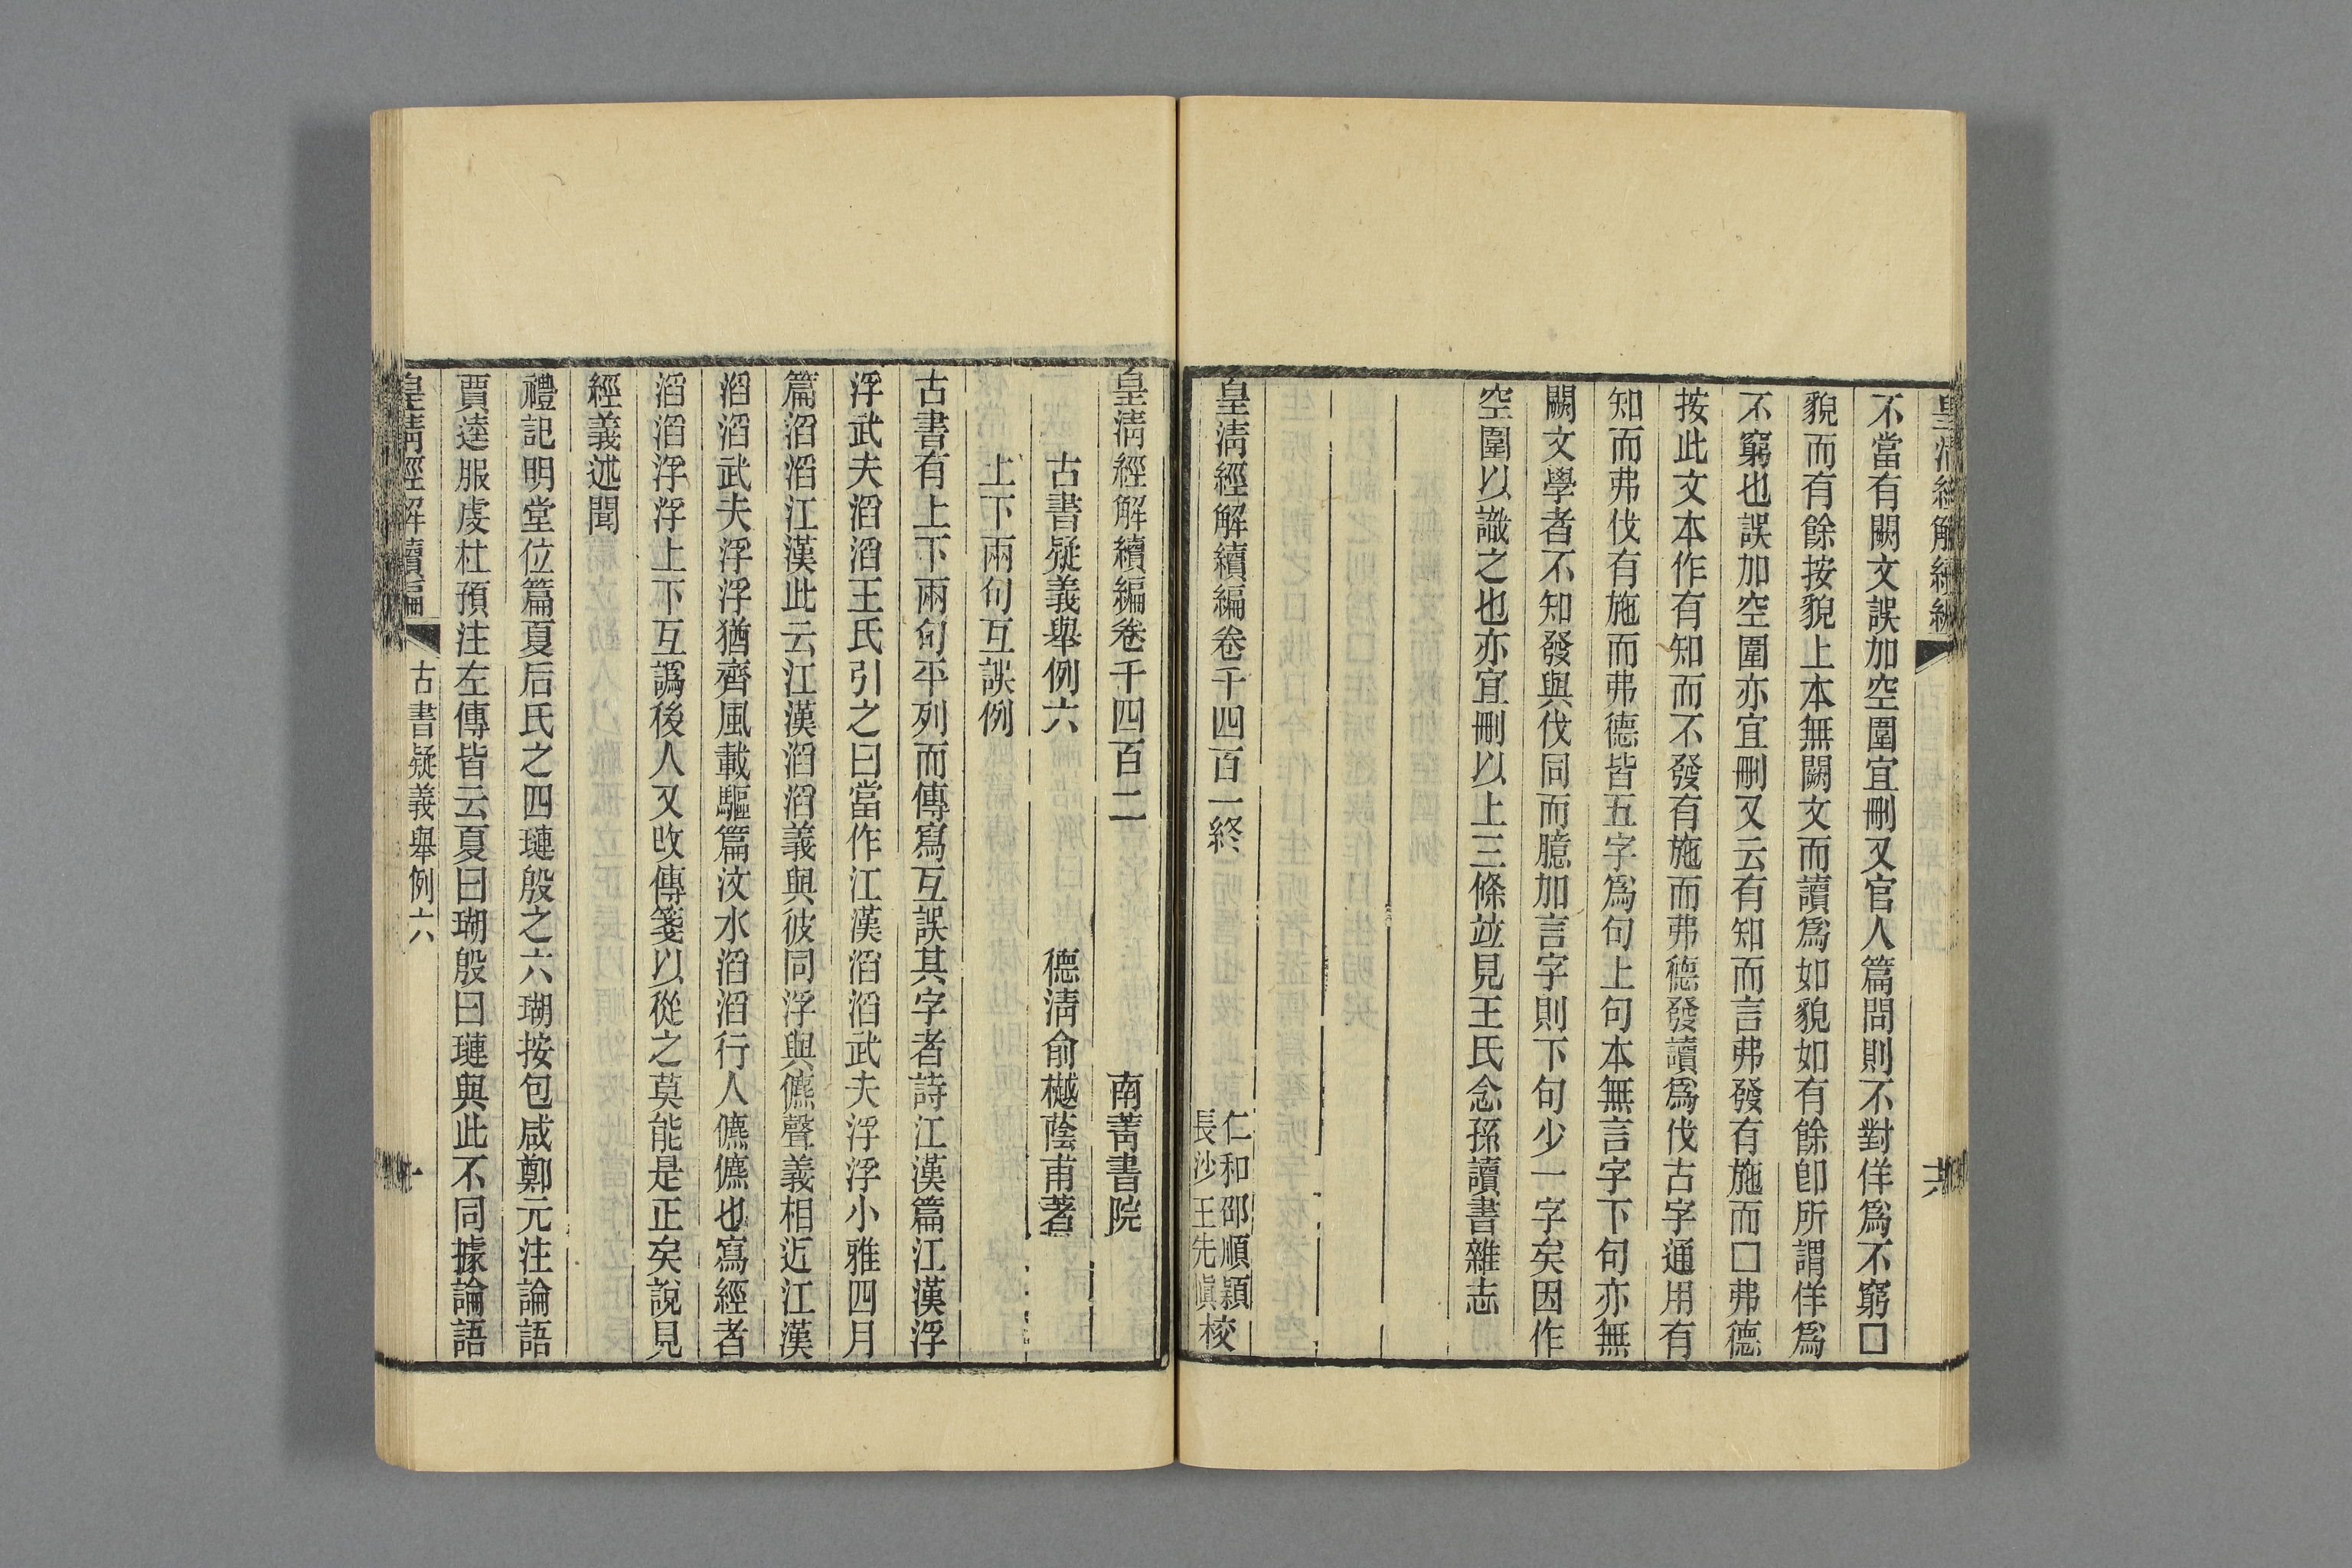 皇清經解續編
不當有闕文誤加空圍宜刪又官人篇問則不對佯爲不窮□
貌而有餘按貌上本無闕文而讀爲如貌如有餘卽所謂佯爲
不窮也誤加空圍亦宜刪又云有知而言弗發有施而□弗德
按此文本作有知而不發有施而弗德發讀爲伐古字通用有
知而弗伐有施而弗德皆五字爲句上句本無言字下句亦無
闕文學者不知發與伐同而臆加言字則下句少一字矣因作
空圍以識之也亦宜刪以上三條竝見王氏念孫讀書雜志
皇清經解續編卷千四百一終
仁和邵順潁
長沙王先愼校
皇清經解續編卷千四百二
南菁書院
古書疑義舉例六
德淸俞樾蔭甫著
上下兩句互誤例
古書有上下兩句平列而傳寫互誤其字者詩江漢篇江漢浮
浮武夫滔滔王氏引之曰當作江漢滔滔武夫浮浮小雅四月
篇滔滔江漢此云江漢滔滔義與彼同浮與儦聲義相近江漢
滔滔武夫浮浮猶齊風載驅篇汶水滔滔行人儦儦也寫經者
滔滔浮浮上下互譌後人又改傳箋以從之莫能是正矣說見
經義述聞
禮記明堂位篇夏后氏之四璉殷之六瑚按包咸鄭元注論語
賈逵服虔杜預注左傳皆云夏曰瑚殷曰璉與此不同據論語
皇清經解續編
古書疑義舉例六